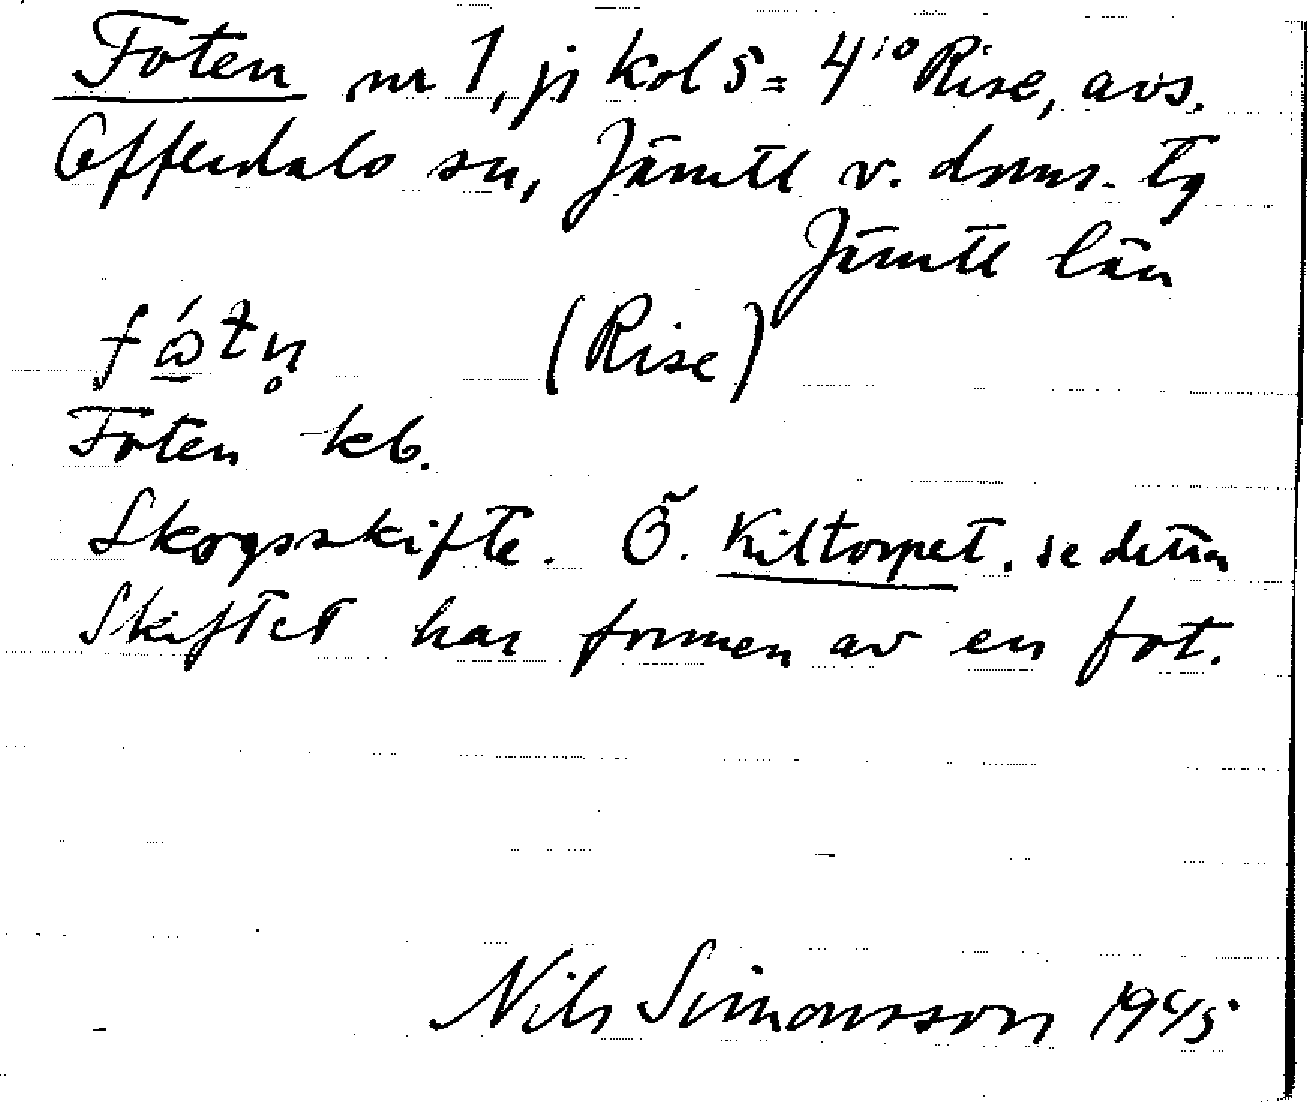 Foten nr 1, js kol 5 = 4¹⁰ Rise, avs.
Offerdals sn, Jämtl v. doms. tg
Jämtl län
fώtn̥ (Rise)
Foten kb.
Skogsskifte. Ö. Kiltorpet. se detta
Skiftet har formen av en fot.
Nils Simonsson 1945